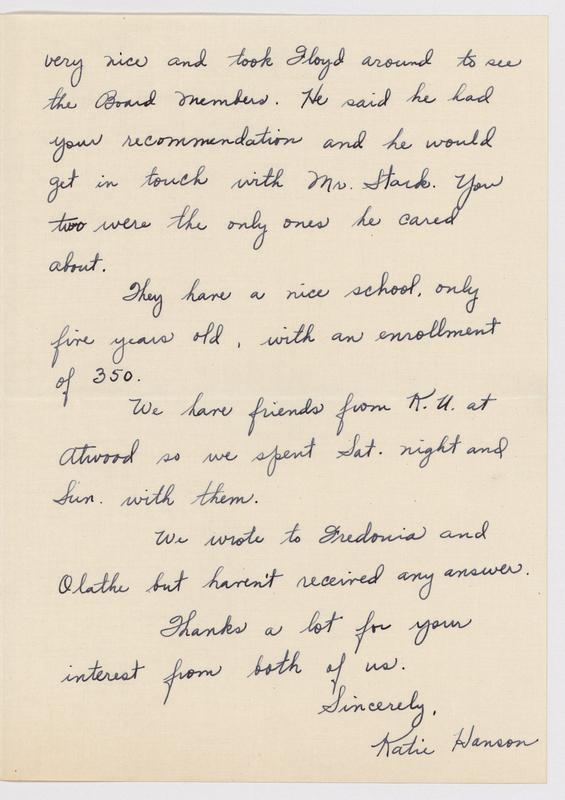 very nice and took Floyd around to see
the Board Members. He said he had
your recommendation and he would
get in touch with Mr. Stark. You
two were the only ones he cared
about.
They have a nice school, only
five years old, with an enrollment
of 350.
We have friends from K.U. at
Atwood so we spent Sat. night and
Sun. with them.
We wrote to Fredonia and
Olathe but haven't received any answer.
Thanks a lot for your
interest from both of us.
Sincerely,
Katie Hanson